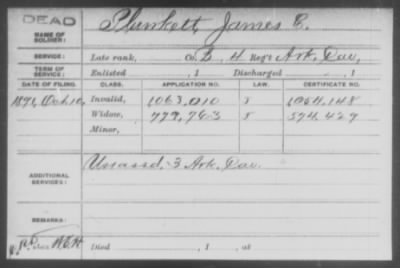 DEAD
NAME OF SOLDIER: Plunkett, James E.
SERVICE: Late rank, Co. B, 4 Reg't Ark. Cav.
TERM OF SERVICE: Enlisted , 1 Discharged , 1
DATE OF FILING. CLASS. APPLICATION NO. LAW. CERTIFICATE NO.
1890, Invalid, 1063,010 1054,148
Widow, 779,763 574,427
Minor,
ADDITIONAL SERVICES: Unassd. 3 Ark. Cav.
REMARKS:
Died , 1 , at